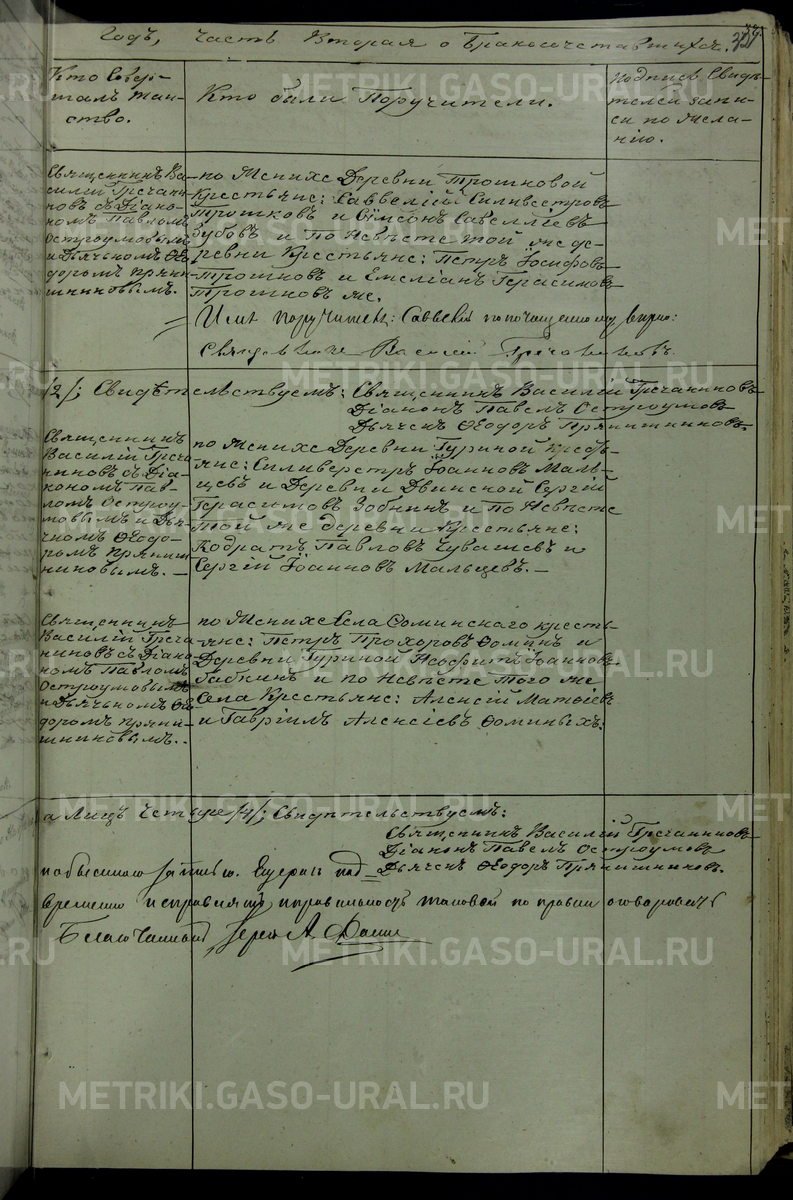 Годъ, Часть Вторая о Бракосочетавшихся.
Кто Совер-
шалъ таин-
ство.
Кто были Поручители.
Подпись Свидѣ-
телей запи-
си по жела-
нію.
Священникъ Ва-
силій Гречани-
новъ съ Діако-
номъ Павломъ
Остроумовымъ
и Дьячкомъ Ѳео-
доромъ Пряни-
шниковымъ.
по Женихѣ Деревни Трошковой
Крестьяне: Саввелій Силивестровъ
Трошковъ и Сімеонъ Савелліевъ
Зубовъ и По Невѣстѣ той же де-
ревни Крестьяне: Петръ Іосифовъ
Трошковъ и Емеліанъ Герасимовъ
Трошковъ же.
Имя поручителя: Саввелій по почищенному вѣрно:
Священникъ Василій Гречаниновъ
/2/; Свидѣтельствуемъ: Священникъ Василій Гречаниновъ
Діаконъ Павелъ Остроумовъ
Дьячекъ Ѳеодоръ Прянишниковъ
Священникъ
Василій Греча-
ниновъ съ Діа-
кономъ Пав-
ломъ Остроу-
мовымъ и Дья-
чкомъ Ѳеодо-
ромъ Прянишь-
никовымъ. —
по Женихѣ Деревни Гуриной Кресть-
яне: Силиверстръ Іоанновъ Маль-
цевъ и Деревни Двинской Сергій
Герасимовъ Зобнинъ и По Невѣстѣ
той же деревни Крестьяне:
Кодратъ Павловъ Чувашевъ и
Сергій Іоанновъ Мальцевъ. —
Священникъ
Василій Греча-
ниновъ съ Діако-
номъ Павломъ
Остроумовымъ
и Дьячкомъ Ѳе-
доромъ Пряни-
шниковымъ.
по Женихѣ Села Ѳоминскаго кресть-
яне: Петръ Прохоровъ Ѳоминъ и
Деревни Гуриной Неофитъ Іоанновъ
Бабкинъ и по Невѣстѣ того же
Села Крестьяне: Алексій Матѳіевъ
и Гавріилъ Алексіевъ Ѳоминыхъ.
а Лицъ Четыре /4/; Свидѣтельствуемъ:
Священникъ Василій Гречаниновъ
Діаконъ Павелъ Остроумовъ
Дьячекъ Ѳеодоръ Прянишниковъ.
исправлять правильность таковой по правки оговоровать
Благочинный Іерей А
METRIKI.GASO-URAL.RU